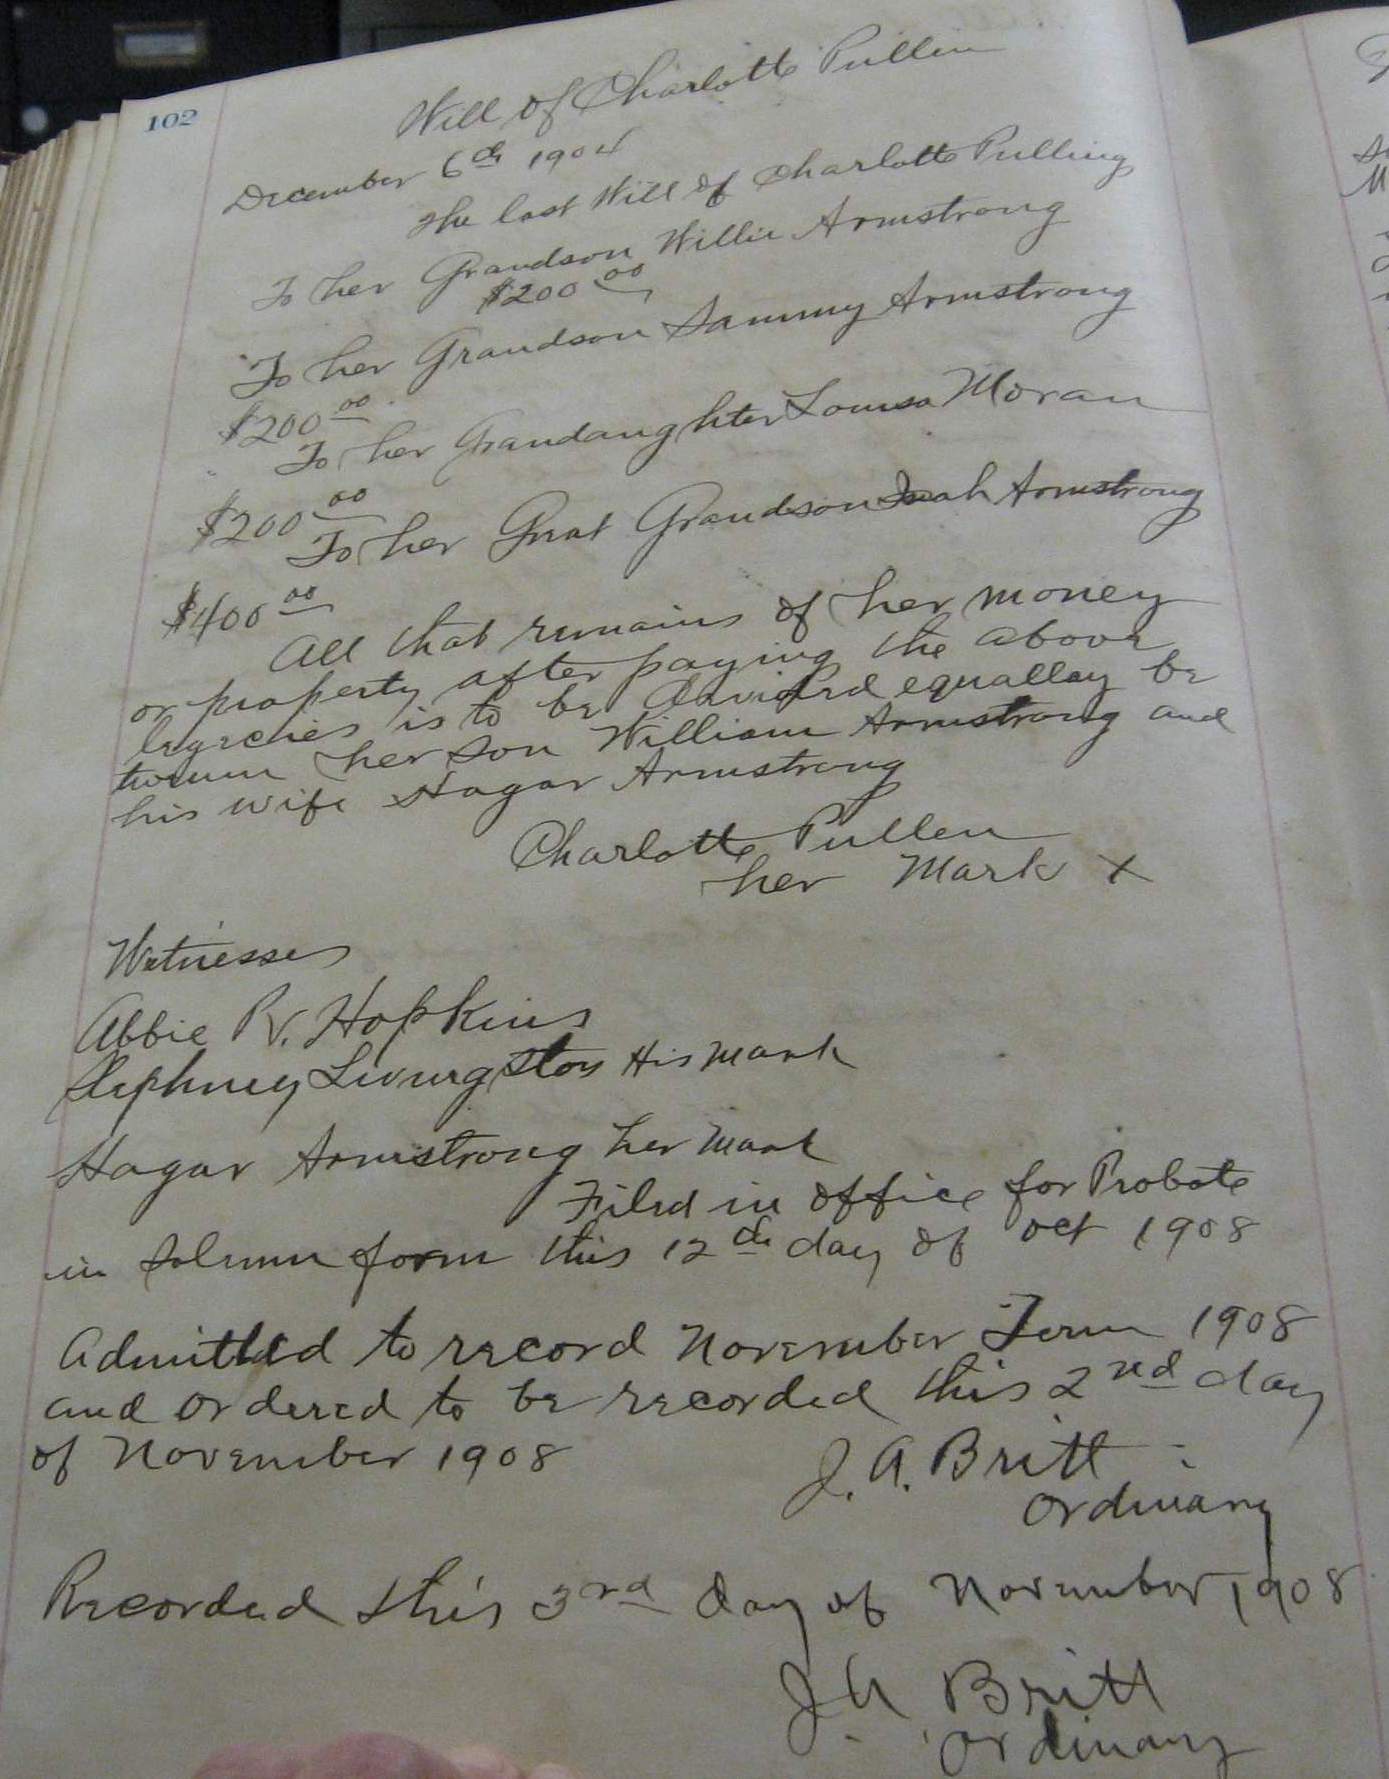 102
Will of Charlotte Pullin
December 6th 1904
The last Will of Charlotte Pulling
To her Grandson Willie Armstrong
$200 00
To her Grandson Sammy Armstrong
$200 00
To her Grandaughter Louisa Moran
$200 00
To her Great Grandson Armstrong
$400 00
All that remains of her money
or property after paying the above
legacies is to be divided equallay be
tween her son William Armstrong and
his wife Hagar Armstrong
Charlotte Pullen
her Mark X
Witnesses
Abbie R. Hopkins
Livingston His mark
Hagar Armstrong her mark
Filed in office for Probate
in Solemn form this 12th day of Oct 1908
Admitted to record November Term 1908
and ordered to be recorded this 2nd day
of November 1908
J. A. Britt
Ordinary
Recorded this 3rd day of November 1908
J. A Britt
Ordinary